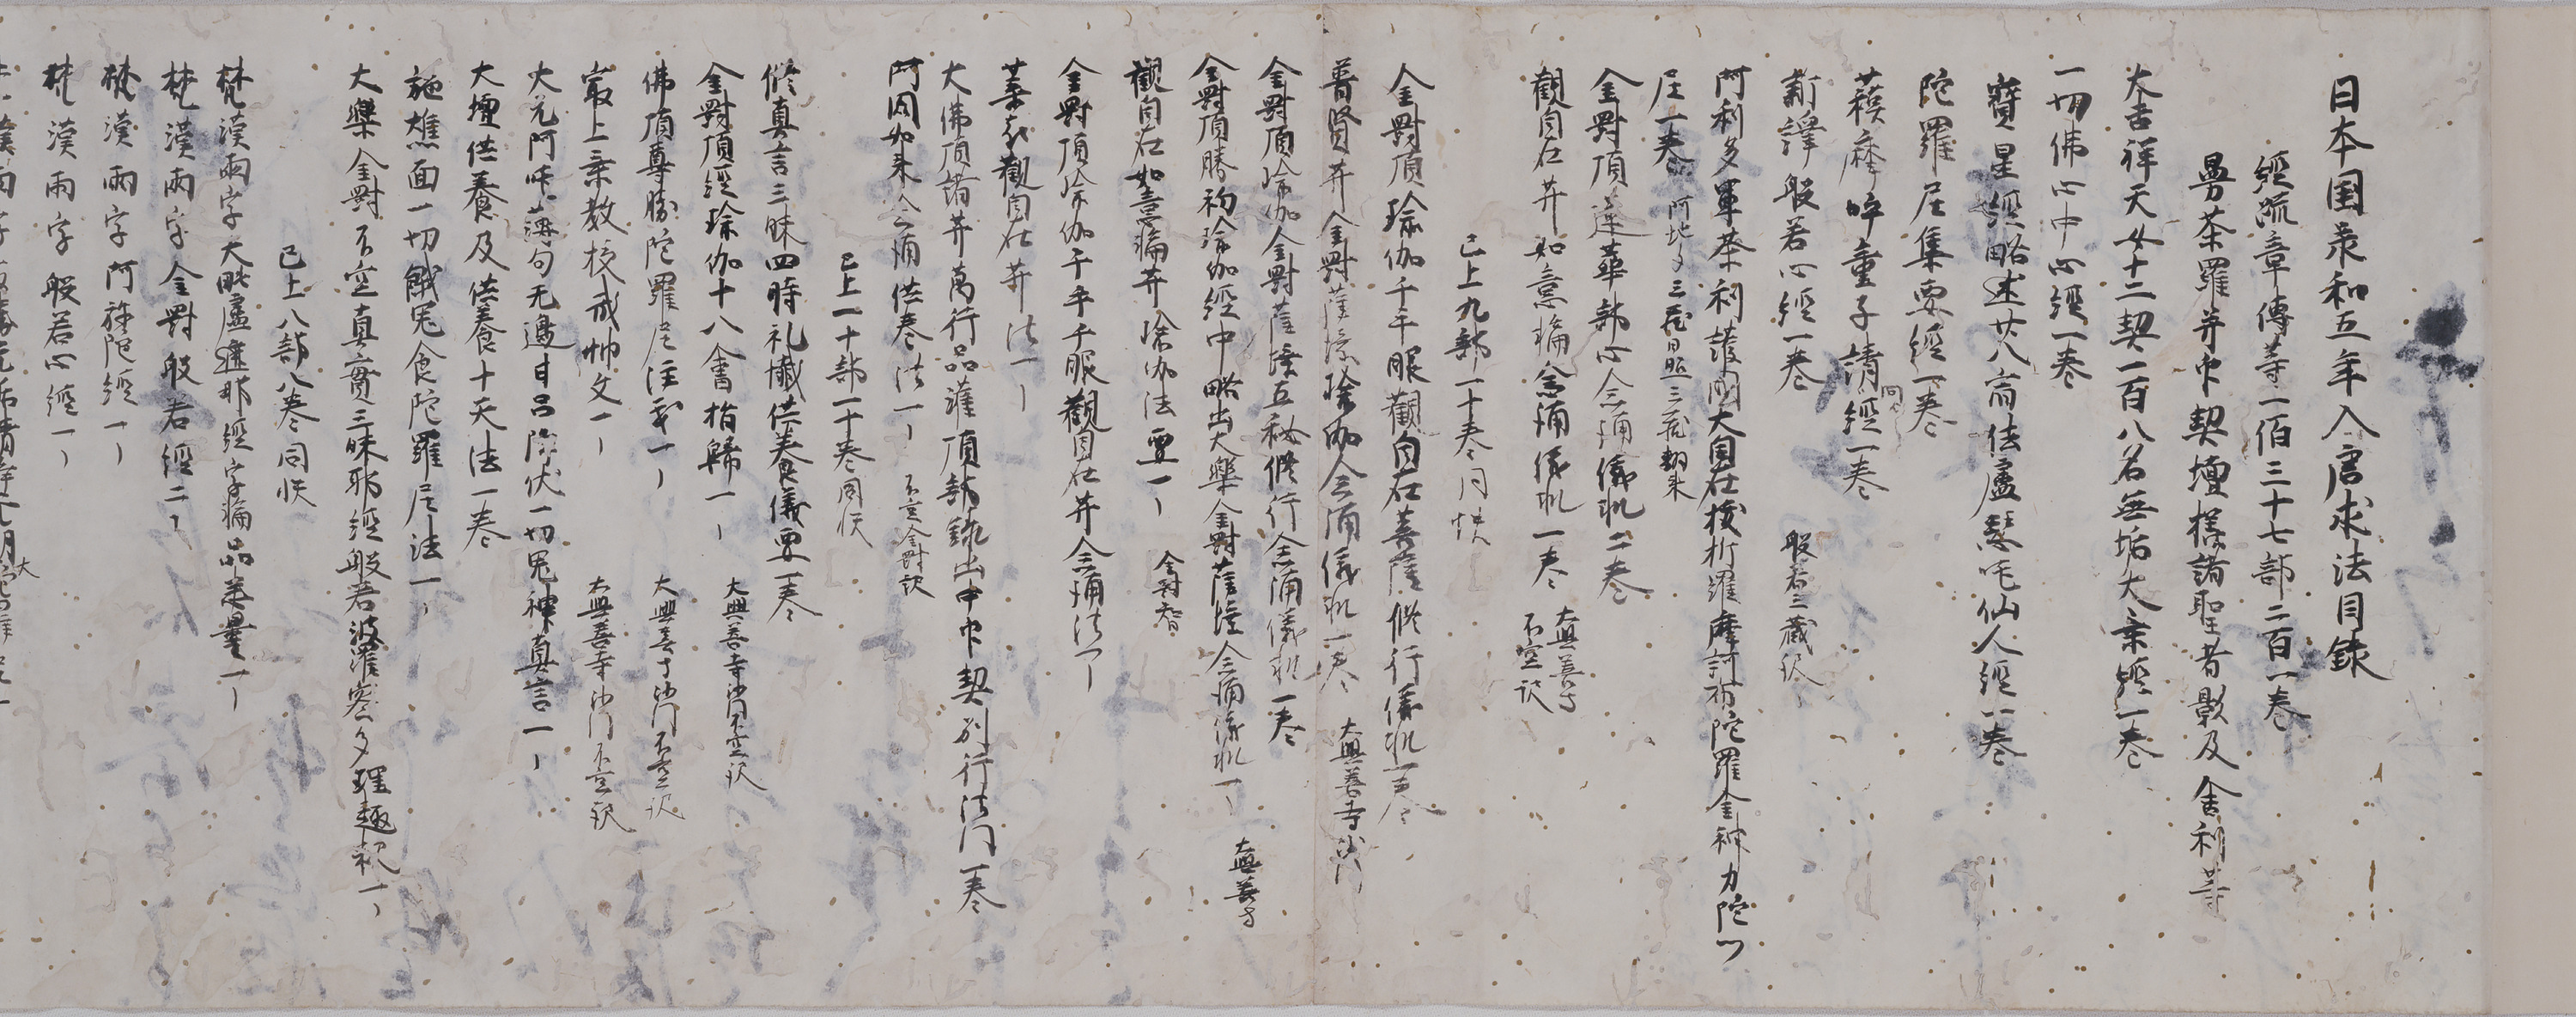 日本国承和五年入唐求法目録
經疏章傳等一佰三十七部二百一卷
曼荼羅并印契壇樣諸聖者影及舍利等
大吉祥天女十二契一百八名無垢大乘經一卷
一切佛心中心經一卷
寶星經略述廿八宿佉盧瑟吒仙人經一卷
陀羅尼集要經一卷
蘓磨呼童子請經一卷 同
新譯般若心經一卷 般若三藏訳
阿利多軍荼利護國大自在拔折羅摩訶布陀羅金神力陀ツ
尼一卷 阿地多三藏 三藏翻来
金剛頂蓮華部心念誦儀軌二卷
觀自在井如意輪念誦儀軌一卷 大興善寺 不空訳
已上九部一十卷同帙
金剛頂瑜伽千手眼觀自在菩薩修行儀軌一卷
普賢井金剛薩埵瑜伽念誦儀軌一卷 大興善寺沙門
金剛頂瑜伽金剛薩埵五秘修行念誦儀軌一卷
金剛頂勝初瑜伽經中略出大樂金剛薩埵念誦儀軌一 大興善寺
觀自在如意輪井瑜伽法要一 金剛智
金剛頂瑜伽千手千眼觀自在井念誦法一
葉衣觀自在井法一
大佛頂諸井萬行品灌頂部録出中印契別行法門一卷
阿閦如来念誦供養法一 不空金剛訳
已上一十部一十卷同帙
修真言三昧四時礼懺供養儀要一卷
金剛頂經瑜伽十八會指歸一 大興善寺沙門不空訳
佛頂尊勝陀羅尼注義一 大興善寺沙門不空訳
最上乘教授戒懺文一 大興善寺沙門不空訳
大元阿吒薄句无邊甘呂降伏一切鬼神真言一
大壇供養及供養十天法一卷
施燋面一切餓鬼食陀羅尼法一
大樂金剛不空真實三昧耶經般若波羅密多理趣釈一
已上八部八卷同帙
梵漢兩字大毗盧遮那經字輪品差量一
梵漢兩字金剛般若經二
梵漢兩字阿弥陀經一
梵漢兩字般若心經一